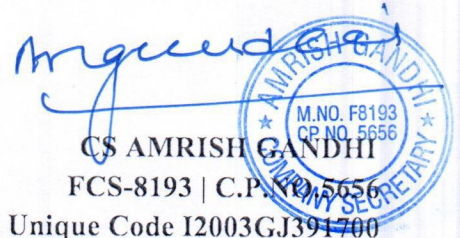 AMRISH GANDHI
M.NO. F8193
CP NO. 5656
COMPANY SECRETARY
CS AMRISH GANDHI
FCS-8193 | C.P.NO.5656
Unique Code I2003GJ391700